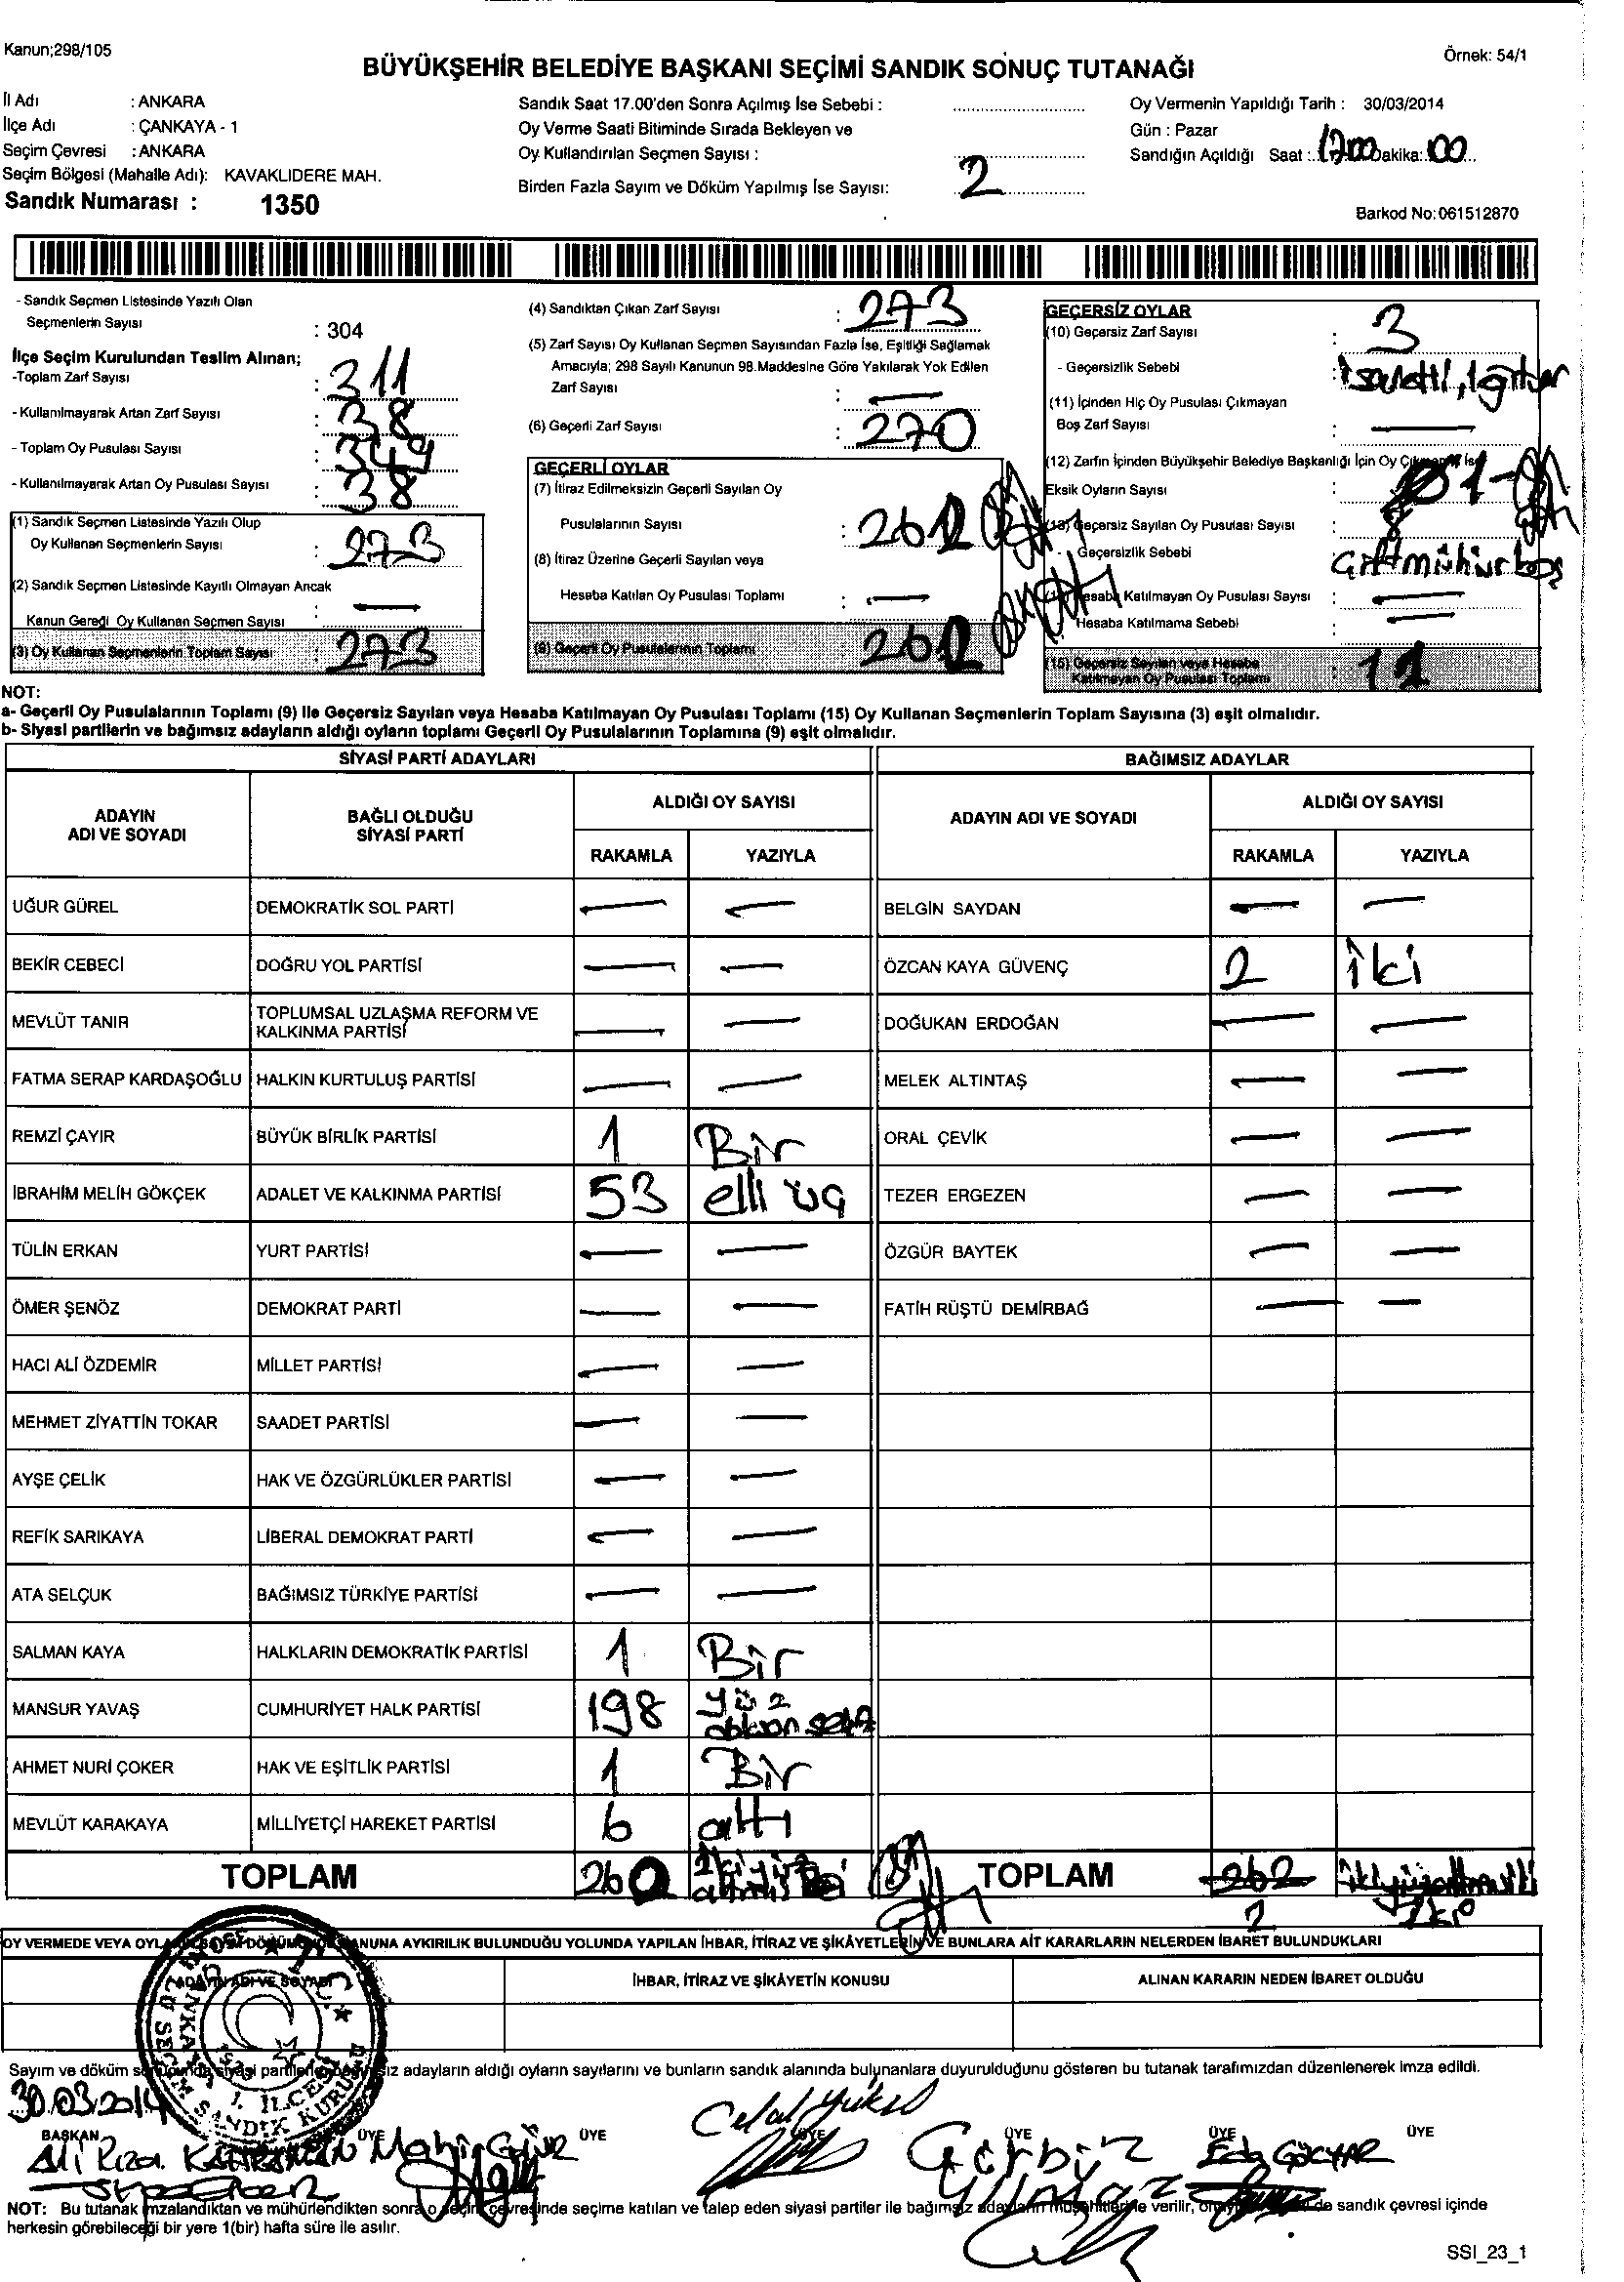 Kanun;298/105
Örnek: 54/1
BÜYÜKŞEHİR BELEDİYE BAŞKANI SEÇİMİ SANDIK SONUÇ TUTANAĞI
İl Adı : ANKARA
İlçe Adı : ÇANKAYA - 1
Seçim Çevresi : ANKARA
Seçim Bölgesi (Mahalle Adı): KAVAKLIDERE MAH.
Sandık Numarası : 1350
Sandık Saat 17.00'den Sonra Açılmış İse Sebebi :
Oy Verme Saati Bitiminde Sırada Bekleyen ve
Oy Kullandırılan Seçmen Sayısı :
Birden Fazla Sayım ve Döküm Yapılmış İse Sayısı: 2
Oy Vermenin Yapıldığı Tarih : 30/03/2014
Gün : Pazar
Sandığın Açıldığı Saat : 1700 Dakika: 00
Barkod No: 061512870
- Sandık Seçmen Listesinde Yazılı Olan
Seçmenlerin Sayısı : 304
İlçe Seçim Kurulundan Teslim Alınan;
-Toplam Zarf Sayısı : 311
- Kullanılmayarak Artan Zarf Sayısı : 38
- Toplam Oy Pusulası Sayısı : 349
- Kullanılmayarak Artan Oy Pusulası Sayısı : 38
(1) Sandık Seçmen Listesinde Yazılı Olup
Oy Kullanan Seçmenlerin Sayısı : 273
(2) Sandık Seçmen Listesinde Kayıtlı Olmayan Ancak
Kanun Gereği Oy Kullanan Seçmen Sayısı : —
(3) Oy Kullanan Seçmenlerin Toplam Sayısı : 273
(4) Sandıktan Çıkan Zarf Sayısı : 273
(5) Zarf Sayısı Oy Kullanan Seçmen Sayısından Fazla İse, Eşitliği Sağlamak
Amacıyla; 298 Sayılı Kanunun 98.Maddesine Göre Yakılarak Yok Edilen
Zarf Sayısı : —
(6) Geçerli Zarf Sayısı : 270
GEÇERLİ OYLAR
(7) İtiraz Edilmeksizin Geçerli Sayılan Oy
Pusulalarının Sayısı : 262
(8) İtiraz Üzerine Geçerli Sayılan veya
Hesaba Katılan Oy Pusulası Toplamı : —
(9) Geçerli Oy Pusulalarının Toplamı : 262
GEÇERSİZ OYLAR
(10) Geçersiz Zarf Sayısı : 3
- Geçersizlik Sebebi : işaretli,
(11) İçinden Hiç Oy Pusulası Çıkmayan
Boş Zarf Sayısı : —
(12) Zarfın İçinden Büyükşehir Belediye Başkanlığı İçin Oy Çıkmamış İse
Eksik Oyların Sayısı :
(13) Geçersiz Sayılan Oy Pusulası Sayısı : 8
- Geçersizlik Sebebi : çift mühür boş
(14) Hesaba Katılmayan Oy Pusulası Sayısı : —
Hesaba Katılmama Sebebi : —
(15) Geçersiz Sayılan veya Hesaba
Katılmayan Oy Pusulası Toplamı : 11
NOT:
a- Geçerli Oy Pusulalarının Toplamı (9) ile Geçersiz Sayılan veya Hesaba Katılmayan Oy Pusulası Toplamı (15) Oy Kullanan Seçmenlerin Toplam Sayısına (3) eşit olmalıdır.
b- Siyasi partilerin ve bağımsız adayların aldığı oyların toplamı Geçerli Oy Pusulalarının Toplamına (9) eşit olmalıdır.
SİYASİ PARTİ ADAYLARI
ADAYIN ADI VE SOYADI BAĞLI OLDUĞU SİYASİ PARTİ ALDIĞI OY SAYISI
RAKAMLA YAZIYLA
UĞUR GÜREL DEMOKRATİK SOL PARTİ — —
BEKİR CEBECİ DOĞRU YOL PARTİSİ — —
MEVLÜT TANIR TOPLUMSAL UZLAŞMA REFORM VE KALKINMA PARTİSİ — —
FATMA SERAP KARDAŞOĞLU HALKIN KURTULUŞ PARTİSİ — —
REMZİ ÇAYIR BÜYÜK BİRLİK PARTİSİ 1 Bir
İBRAHİM MELİH GÖKÇEK ADALET VE KALKINMA PARTİSİ 53 elli üç
TÜLİN ERKAN YURT PARTİSİ — —
ÖMER ŞENÖZ DEMOKRAT PARTİ — —
HACI ALİ ÖZDEMİR MİLLET PARTİSİ — —
MEHMET ZİYATTİN TOKAR SAADET PARTİSİ — —
AYŞE ÇELİK HAK VE ÖZGÜRLÜKLER PARTİSİ — —
REFİK SARIKAYA LİBERAL DEMOKRAT PARTİ — —
ATA SELÇUK BAĞIMSIZ TÜRKİYE PARTİSİ — —
SALMAN KAYA HALKLARIN DEMOKRATİK PARTİSİ 1 Bir
MANSUR YAVAŞ CUMHURİYET HALK PARTİSİ 198 yüz doksan sekiz
AHMET NURİ ÇOKER HAK VE EŞİTLİK PARTİSİ 1 Bir
MEVLÜT KARAKAYA MİLLİYETÇİ HAREKET PARTİSİ 6 altı
TOPLAM 260
BAĞIMSIZ ADAYLAR
ADAYIN ADI VE SOYADI ALDIĞI OY SAYISI
RAKAMLA YAZIYLA
BELGİN SAYDAN — —
ÖZCAN KAYA GÜVENÇ 2 iki
DOĞUKAN ERDOĞAN — —
MELEK ALTINTAŞ — —
ORAL ÇEVİK — —
TEZER ERGEZEN — —
ÖZGÜR BAYTEK — —
FATİH RÜŞTÜ DEMİRBAĞ — —
TOPLAM 262
2 iki
OY VERMEDE VEYA OYLARIN SAYIM DÖKÜMÜNDE KANUNA AYKIRILIK BULUNDUĞU YOLUNDA YAPILAN İHBAR, İTİRAZ VE ŞİKÂYETLERİN VE BUNLARA AİT KARARLARIN NELERDEN İBARET BULUNDUKLARI
ADAYIN ADI VE SOYADI İHBAR, İTİRAZ VE ŞİKÂYETİN KONUSU ALINAN KARARIN NEDEN İBARET OLDUĞU
Sayım ve döküm sonucunda siyasi partilerin bağımsız adayların aldığı oyların sayılarını ve bunların sandık alanında bulunanlara duyurulduğunu gösteren bu tutanak tarafımızdan düzenlenerek imza edildi.
30.03.2014
T.C.
1. İLÇE
SANDIK KURULU
Celal Yüksel
BAŞKAN ÜYE ÜYE ÜYE ÜYE ÜYE ÜYE
Ali Rıza
NOT: Bu tutanak imzalandıktan ve mühürlendikten sonra o seçim çevresinde seçime katılan ve talep eden siyasi partiler ile bağımsız adayların müşahitlerine verilir, de sandık çevresi içinde
herkesin görebileceği bir yere 1(bir) hafta süre ile asılır.
SSI_23_1